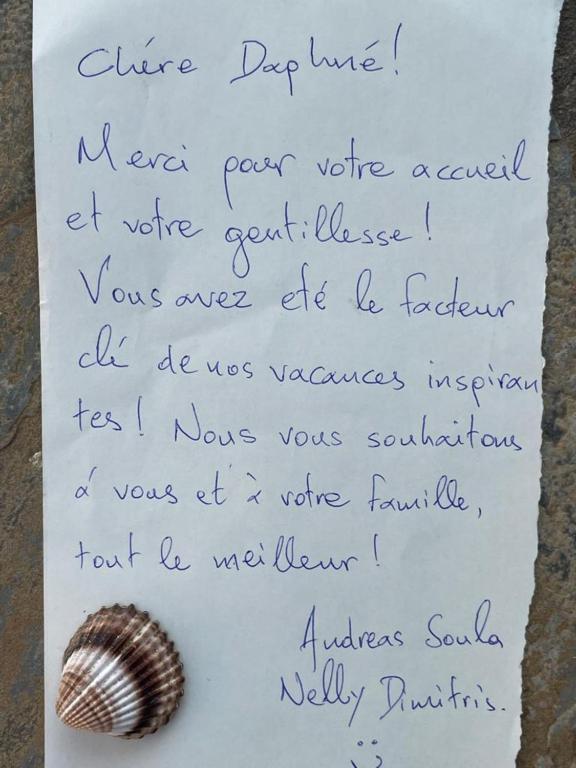 Chére Daphné!
Merci pour votre accueil
et votre gentillesse!
Vous avez eté le facteur
clé de nos vacances inspiran
tes! Nous vous souhaitons
á vous et à votre famille,
tout le meilleur!
Andreas Soula
Nelly Dimitris.